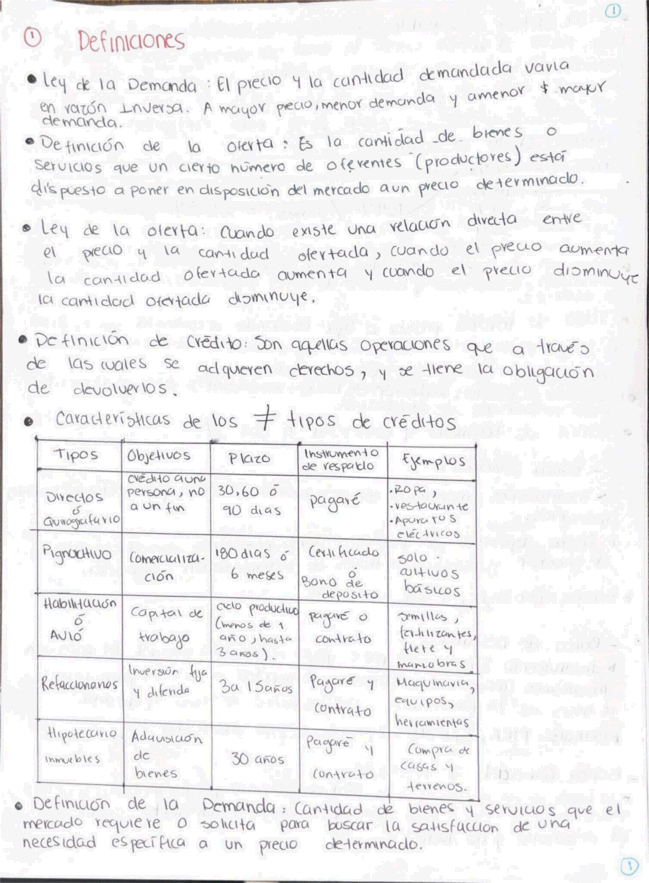 1
① Definiciones
• Ley de la Demanda: El precio y la cantidad demandada varia
en razón Inversa. A mayor precio, menor demanda y amenor $ mayor
demanda.
• Definición de la oferta: Es la cantidad de bienes o
servicios que un cierto número de oferentes (productores) está
dispuesto a poner en disposición del mercado a un precio determinado.
• Ley de la oferta: Cuando existe una relación directa entre
el precio y la cantidad ofertada, cuando el precio aumenta
la cantidad ofertada aumenta y cuando el precio disminuye
la cantidad ofertada disminuye.
• Definición de Crédito: Son aquellas operaciones que a través
de las cuales se adquieren derechos, y se tiene la obligación
de devolverlos.
• Características de los ≠ tipos de créditos
Tipos Objetivos Plazo Instrumento
de respaldo Ejemplos
Directos
ó
Quirografario
crédito a una
persona, no
a un fin
30,60 ó
90 dias
pagaré
•Ropa,
•restaurante
•Aparatos
eléctricos
Pignoraticio
Comercializa-
ción
180 dias ó
6 meses
Certificado
ó
Bono de
deposito
solo
cultivos
básicos
Habilitación
ó
Avió
Capital de
trabajo
ciclo productivo
(menos de 1
año, hasta
3 anos).
pagaré o
contrato
semillas,
fertilizantes,
flete y
maniobras.
Refaccionarios
Inversión fija
y diferida
3a 15años
Pagaré y
contrato
Maquinaria,
equipos,
herramientas
Hipotecario
inmuebles
Adquisición
de
bienes
30 anos
Pagaré y
contrato
Compra de
casas y
terrenos.
• Definición de la Demanda: Cantidad de bienes y servicios que el
mercado requiere o solicita para buscar la satisfaccion de una
necesidad específica a un precio determinado.
1